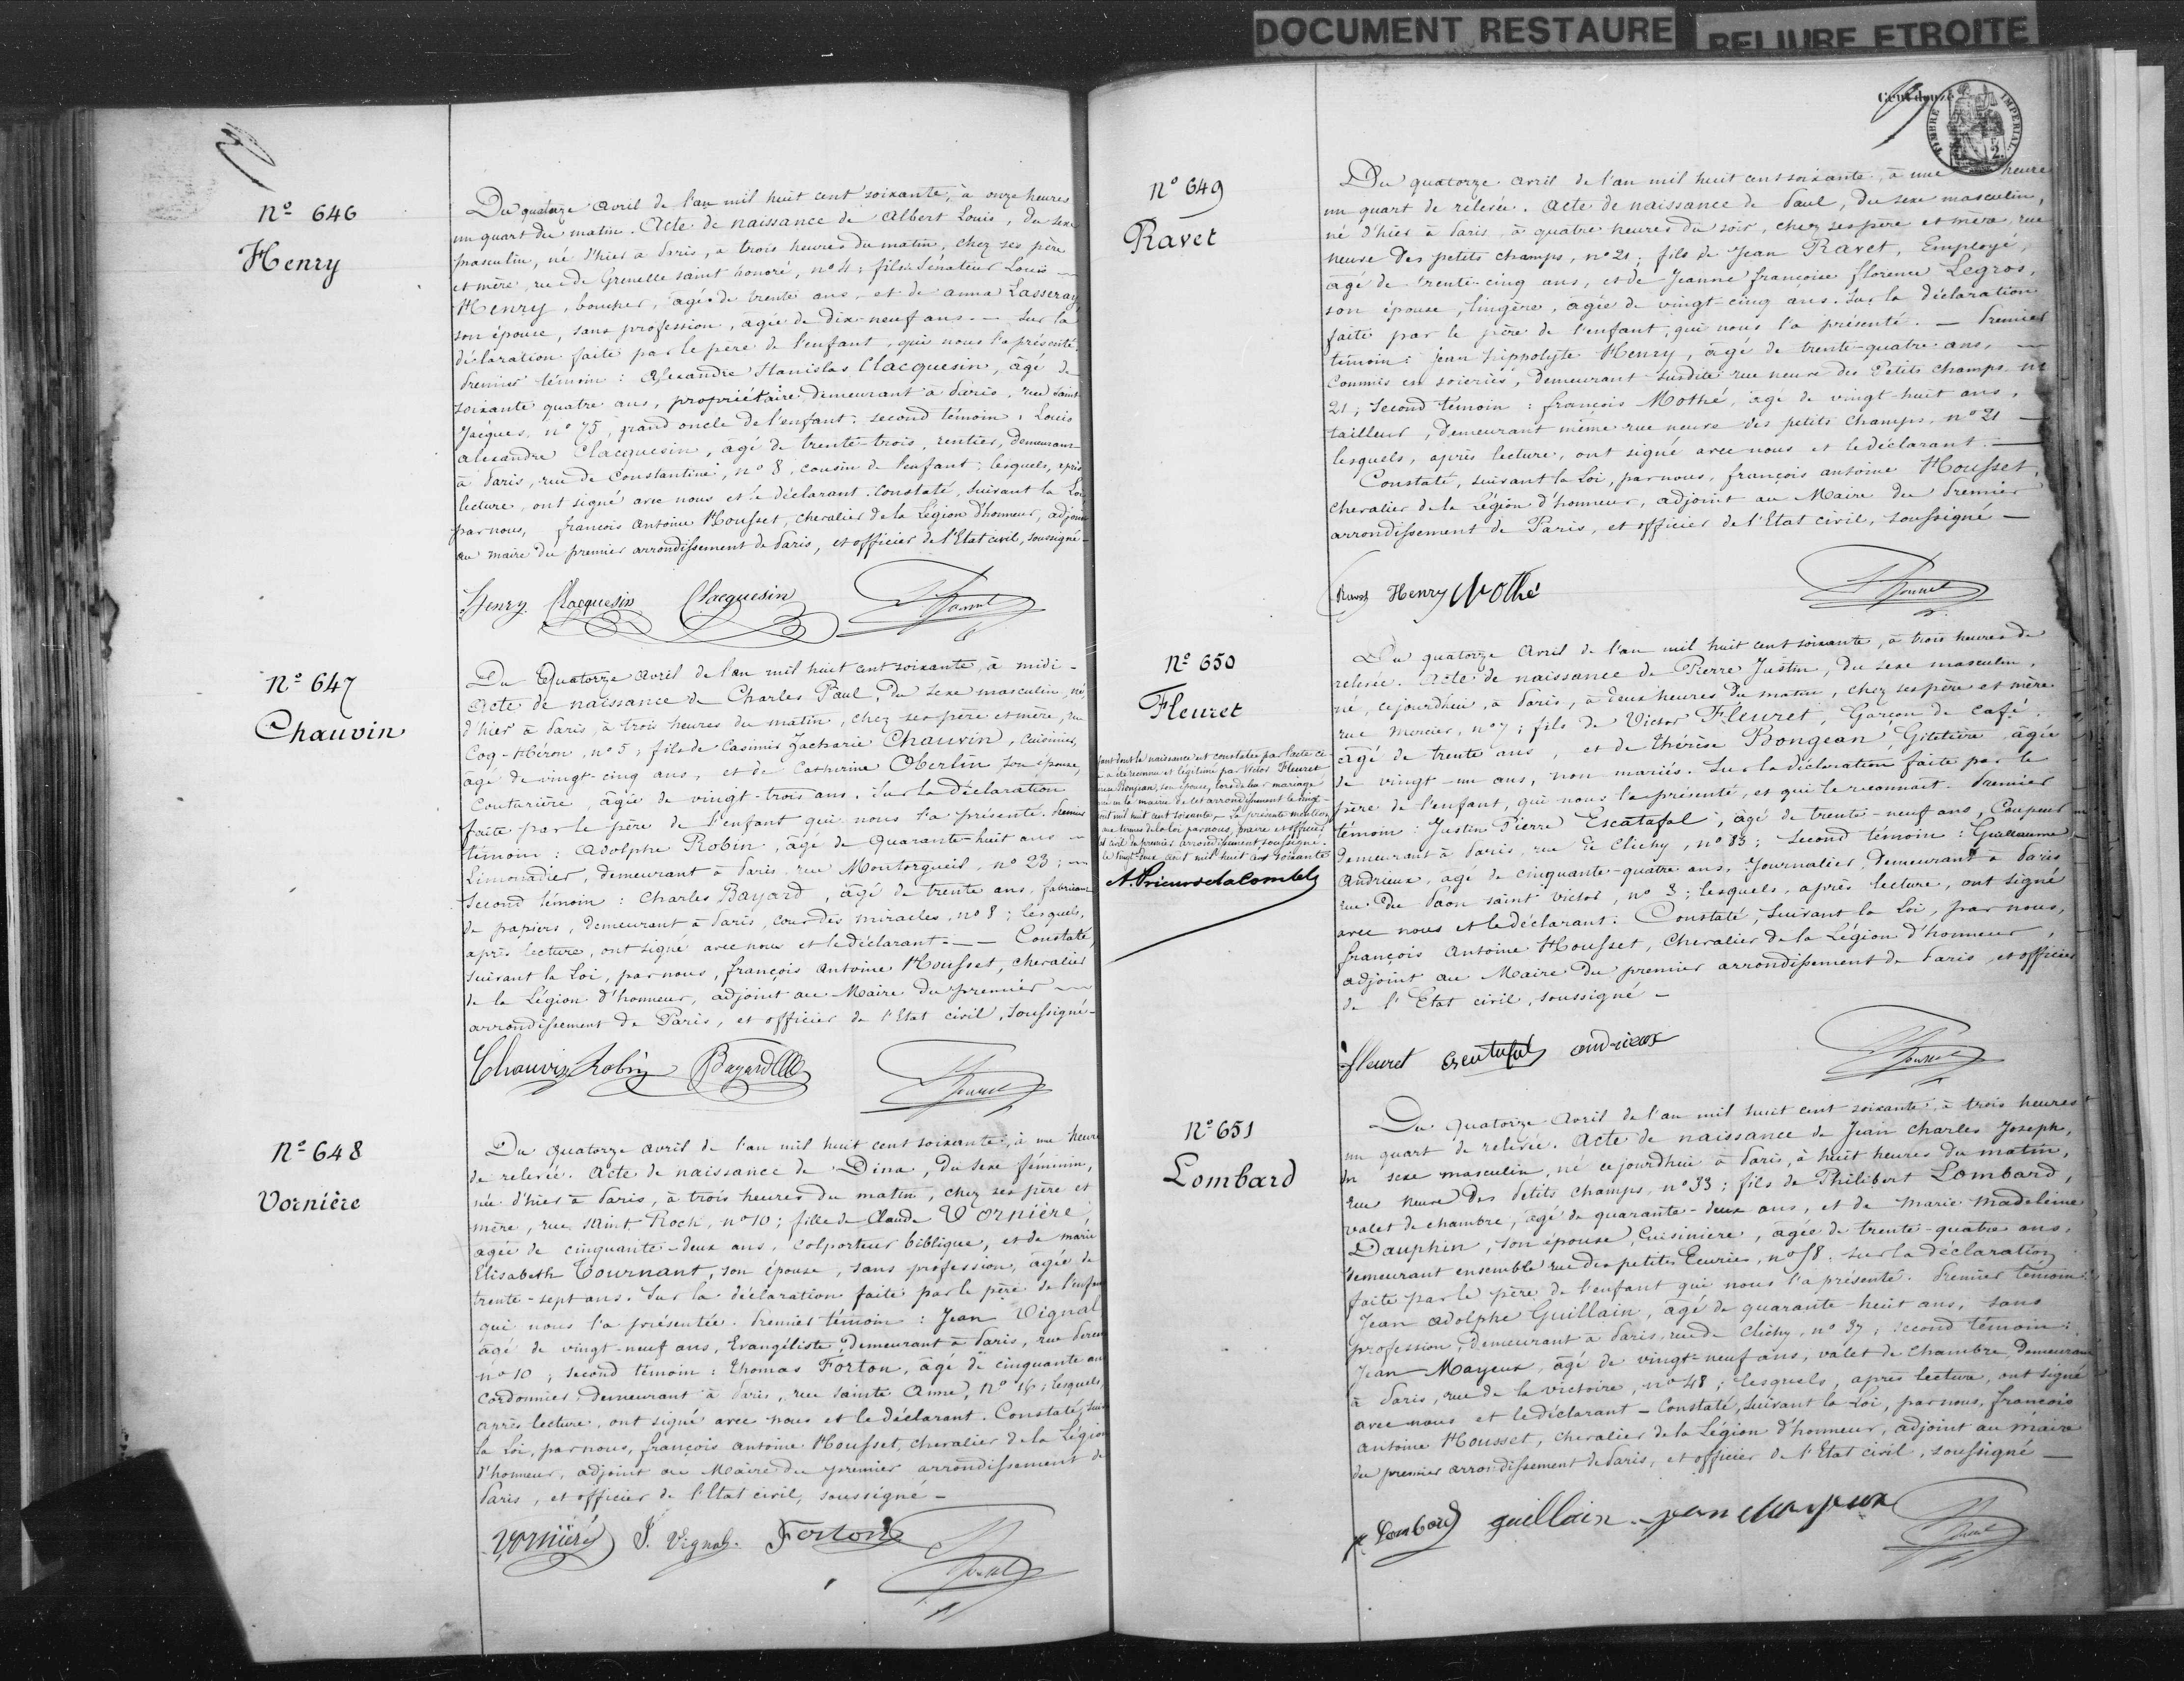 DOCUMENT RESTAURE
RELIURE ETROITE
Nº 646
Henry
Du quatorze avril de l'an mil huit cent soixante, à onze heures
un quart du matin. Acte de naissance de Albert Louis, du sexe
masculin, né d'hier à Paris, à trois heures du matin, chez ses père
et mère, rue de Grenelle saint honoré, nº 4; fils de Sénateur Louis
Henry, boucher, âgé de trente ans, et de anna Lasseray,
son épouse, sans profession, âgée de dix-neuf ans. — Sur la
déclaration faite par le père de l'enfant, qui nous l'a présenté.
Premier témoin : Alexandre Stanislas Clacquesin, âgé de
soixante quatre ans, propriétaire, demeurant à Paris, rue Saint
Jacques, nº 75, grand oncle de l'enfant; second témoin : Louis
alexandre Clacquesin, âgé de trente-trois, rentier, demeurant
à Paris, rue de Constantine, nº 8, cousin de l'enfant; lesquels, après
lecture, ont signé avec nous et le déclarant. Constaté, suivant la Loi,
par nous, françois Antoine Housset, chevalier de la Légion d'honneur, adjoint
au maire du premier arrondissement de Paris, et officier de l'Etat civil, soussigné -
Henry Clacquesin Clacquesin Housset
Nº 647
Chauvin
Du Quatorze avril de l'an mil huit cent soixante, à midi -
Acte de naissance de Charles Paul, du sexe masculin, né,
d'hier à Paris, à trois heures du matin, chez ses père et mère, rue
Coq-Héron, nº 5; fils de Casimir Zacharie Chauvin, cuisinier,
âgé de vingt-cinq ans, et de Catherine Oberlin son épouse,
Couturière, âgée de vingt-trois ans. Sur la déclaration
faite par le père de l'enfant qui nous l'a présenté. Premier
témoin : Adolphe Robin, âgé de Quarante-huit ans
Limonadier, demeurant à Paris, rue Montorgueil, nº 23;
Second témoin : Charles Bayard, âgé de trente ans, fabricant
de papiers, demeurant à Paris, cour des miracles, nº 8; lesquels,
après lecture, ont signé avec nous et le déclarant. — Constaté,
suivant la Loi, par nous, françois Antoine Housset, chevalier
de la Légion d'honneur, adjoint au Maire du premier
arrondissement de Paris, et officier de l'Etat civil, soussigné -
Chauvin Robin Bayard Housset
Nº 648
Vornière
Du quatorze avril de l'an mil huit cent soixante, à une heure
de relevée. Acte de naissance de Dina, du sexe féminin,
née d'hier à Paris, à trois heures du matin, chez ses père et
mère, rue Saint Roch, nº 10; fille de Claude Vornière,
âgée de cinquante-deux ans, colporteur biblique, et de marie
Elisabeth Tournant, son épouse, sans profession, âgée de
trente-sept ans. Sur la déclaration faite par le père de l'enfant
qui nous l'a présentée. Premier témoin : Jean Vignal
âgé de vingt-neuf ans, Evangéliste, demeurant à Paris, rue
nº 10; second témoin : Thomas Forton, âgé de cinquante ans
cordonnier, demeurant à Paris, rue sainte Anne, nº 16; lesquels,
après lecture, ont signé avec nous et le déclarant. Constaté, suiv
la Loi, par nous, françois antoine Housset, chevalier de la Légion
d'honneur, adjoint au Maire du premier arrondissement de
Paris, et officier de l'Etat civil, soussigné -
Vornière J. Vignal. Forton Housset
Cent douze
TIMBRE IMPERIAL
Nº 649
Ravet
Du quatorze avril de l'an mil huit cent soixante, à une heure
un quart de relevée. Acte de naissance de Paul, du sexe masculin,
né d'hier à Paris, à quatre heures du soir, chez ses père et mère, rue
neuve des petits champs, nº 21; fils de Jean Ravet, Employé,
âgé de trente-cinq ans, et de Jeanne françoise florence Legros,
son épouse, lingère, âgée de vingt-cinq ans. Sur la déclaration
faite par le père de l'enfant, qui nous l'a présenté. — Premier
témoin : Jean hippolyte Henry, âgé de trente-quatre ans,
Commis en soieries, demeurant susdite rue neuve des Petits champs nº
21; Second témoin : françois Mothé, âgé de vingt-huit ans,
tailleur, demeurant même rue neuve des petits champs, nº 21 —
lesquels, après lecture, ont signé avec nous et le déclarant. —
Constaté, suivant la Loi, par nous, françois antoine Housset,
chevalier de la Légion d'honneur, adjoint au Maire du Premier
arrondissement de Paris, et officier de l'Etat civil, soussigné —
Ravet Henry Mothé Housset
Nº 650
Fleuret
Du quatorze avril de l'an mil huit cent soixante, à trois heures de
relevée. Acte de naissance de Pierre Justin, du sexe masculin,
né, cejourd'hui, à Paris, à deux heures du matin, chez ses père et mère
rue Mercier, nº 7; fils de Victor Fleuret, Garçon de café,
âgé de trente ans, et de Thérèse Bongean, Giletière, âgée
de vingt-un ans, non mariés. Sur la déclaration faite par le
père de l'enfant, qui nous l'a présenté, et qui le reconnait. Premier
témoin : Justin Pierre Escatafal, âgé de trente-neuf ans, Coupeur
demeurant à Paris, rue de Clichy, nº 83; Second témoin : Guillaume
Andrieux, âgé de cinquante-quatre ans, Journalier, demeurant à Paris
rue du Paon saint victor, nº 3; lesquels, après lecture, ont signé
avec nous et le déclarant. Constaté, suivant la Loi, par nous,
françois Antoine Housset, Chevalier de la Légion d'honneur,
adjoint au Maire du premier arrondissement de Paris, et officier
de l'Etat civil, soussigné -
fant dont la naissance est constatée par l'acte ci-
a été reconnu et légitimé par Victor Fleuret
Bongean, son épouse, lors de leur mariage
la mairie de cet arrondissement le vingt-
août mil huit cent soixante — La présente mention
aux termes de la loi par nous, maire et officier
civil du premier arrondissement soussigné
le vingt-deux août mil huit cent soixante
Fleuret escatafal andrieux Housset
Nº 651
Lombard
Du Quatorze Avril de l'an mil huit cent soixante, à trois heures
un quart de relevée. Acte de naissance de Jean charles Joseph,
du sexe masculin, né cejourd'hui à Paris, à huit heures du matin,
rue neuve des Petits champs, nº 33; fils de Philibert Lombard,
valet de chambre, âgé de quarante-deux ans, et de Marie Madeleine
Dauphin, son épouse, Cuisinière, âgée de trente-quatre ans,
demeurant ensemble rue des petites Ecuries, nº 58. Sur la déclaration
faite par le père de l'enfant qui nous l'a présenté. Premier témoin :
Jean adolphe Guillain, âgé de quarante-huit ans, sans
profession, demeurant à Paris, rue de Clichy, nº 37; second témoin :
Jean Mayeux, âgé de vingt-neuf ans, valet de chambre, demeurant
à Paris, rue de la victoire, nº 48; lesquels, après lecture, ont signé
avec nous et le déclarant — Constaté, suivant la Loi, par nous, françois
Antoine Housset, chevalier de la Légion d'honneur, adjoint au maire
du premier arrondissement de Paris, et officier de l'Etat civil, soussigné —
Lombard guillain jean Mayeux Housset